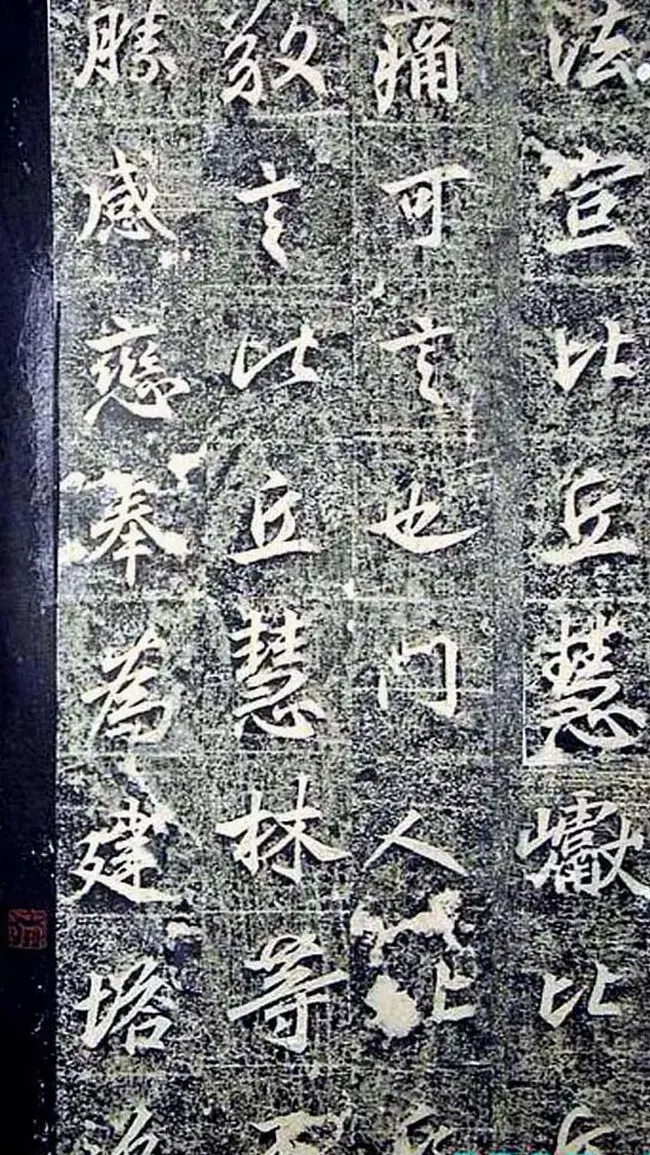 法宣比丘慧巘比丘
痛可言也門人
言比丘慧林等不
勝感慈奉為建塔